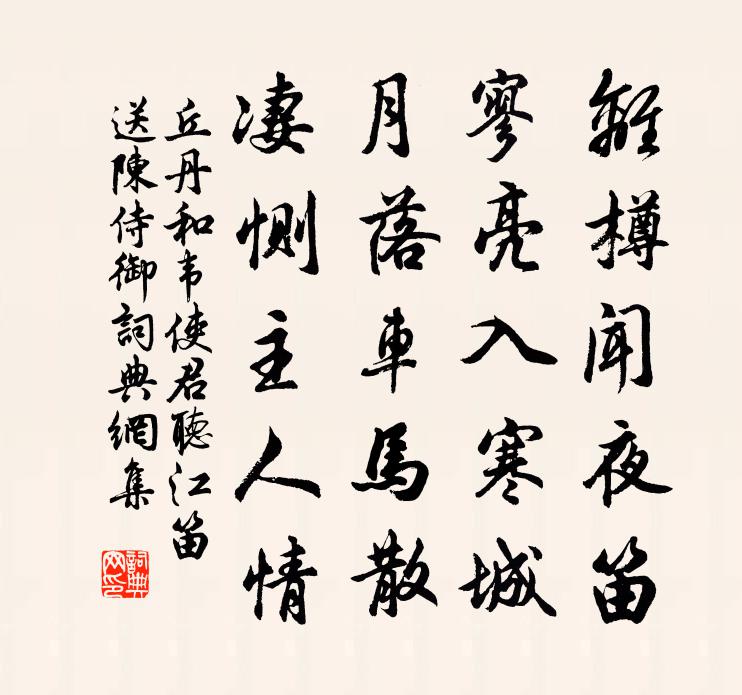 離樽聞夜笛
寥亮入寒城
月落車馬散
凄惻主人情
丘丹和韦使君聽江笛
送陳侍御詞典網集
詞典
网印